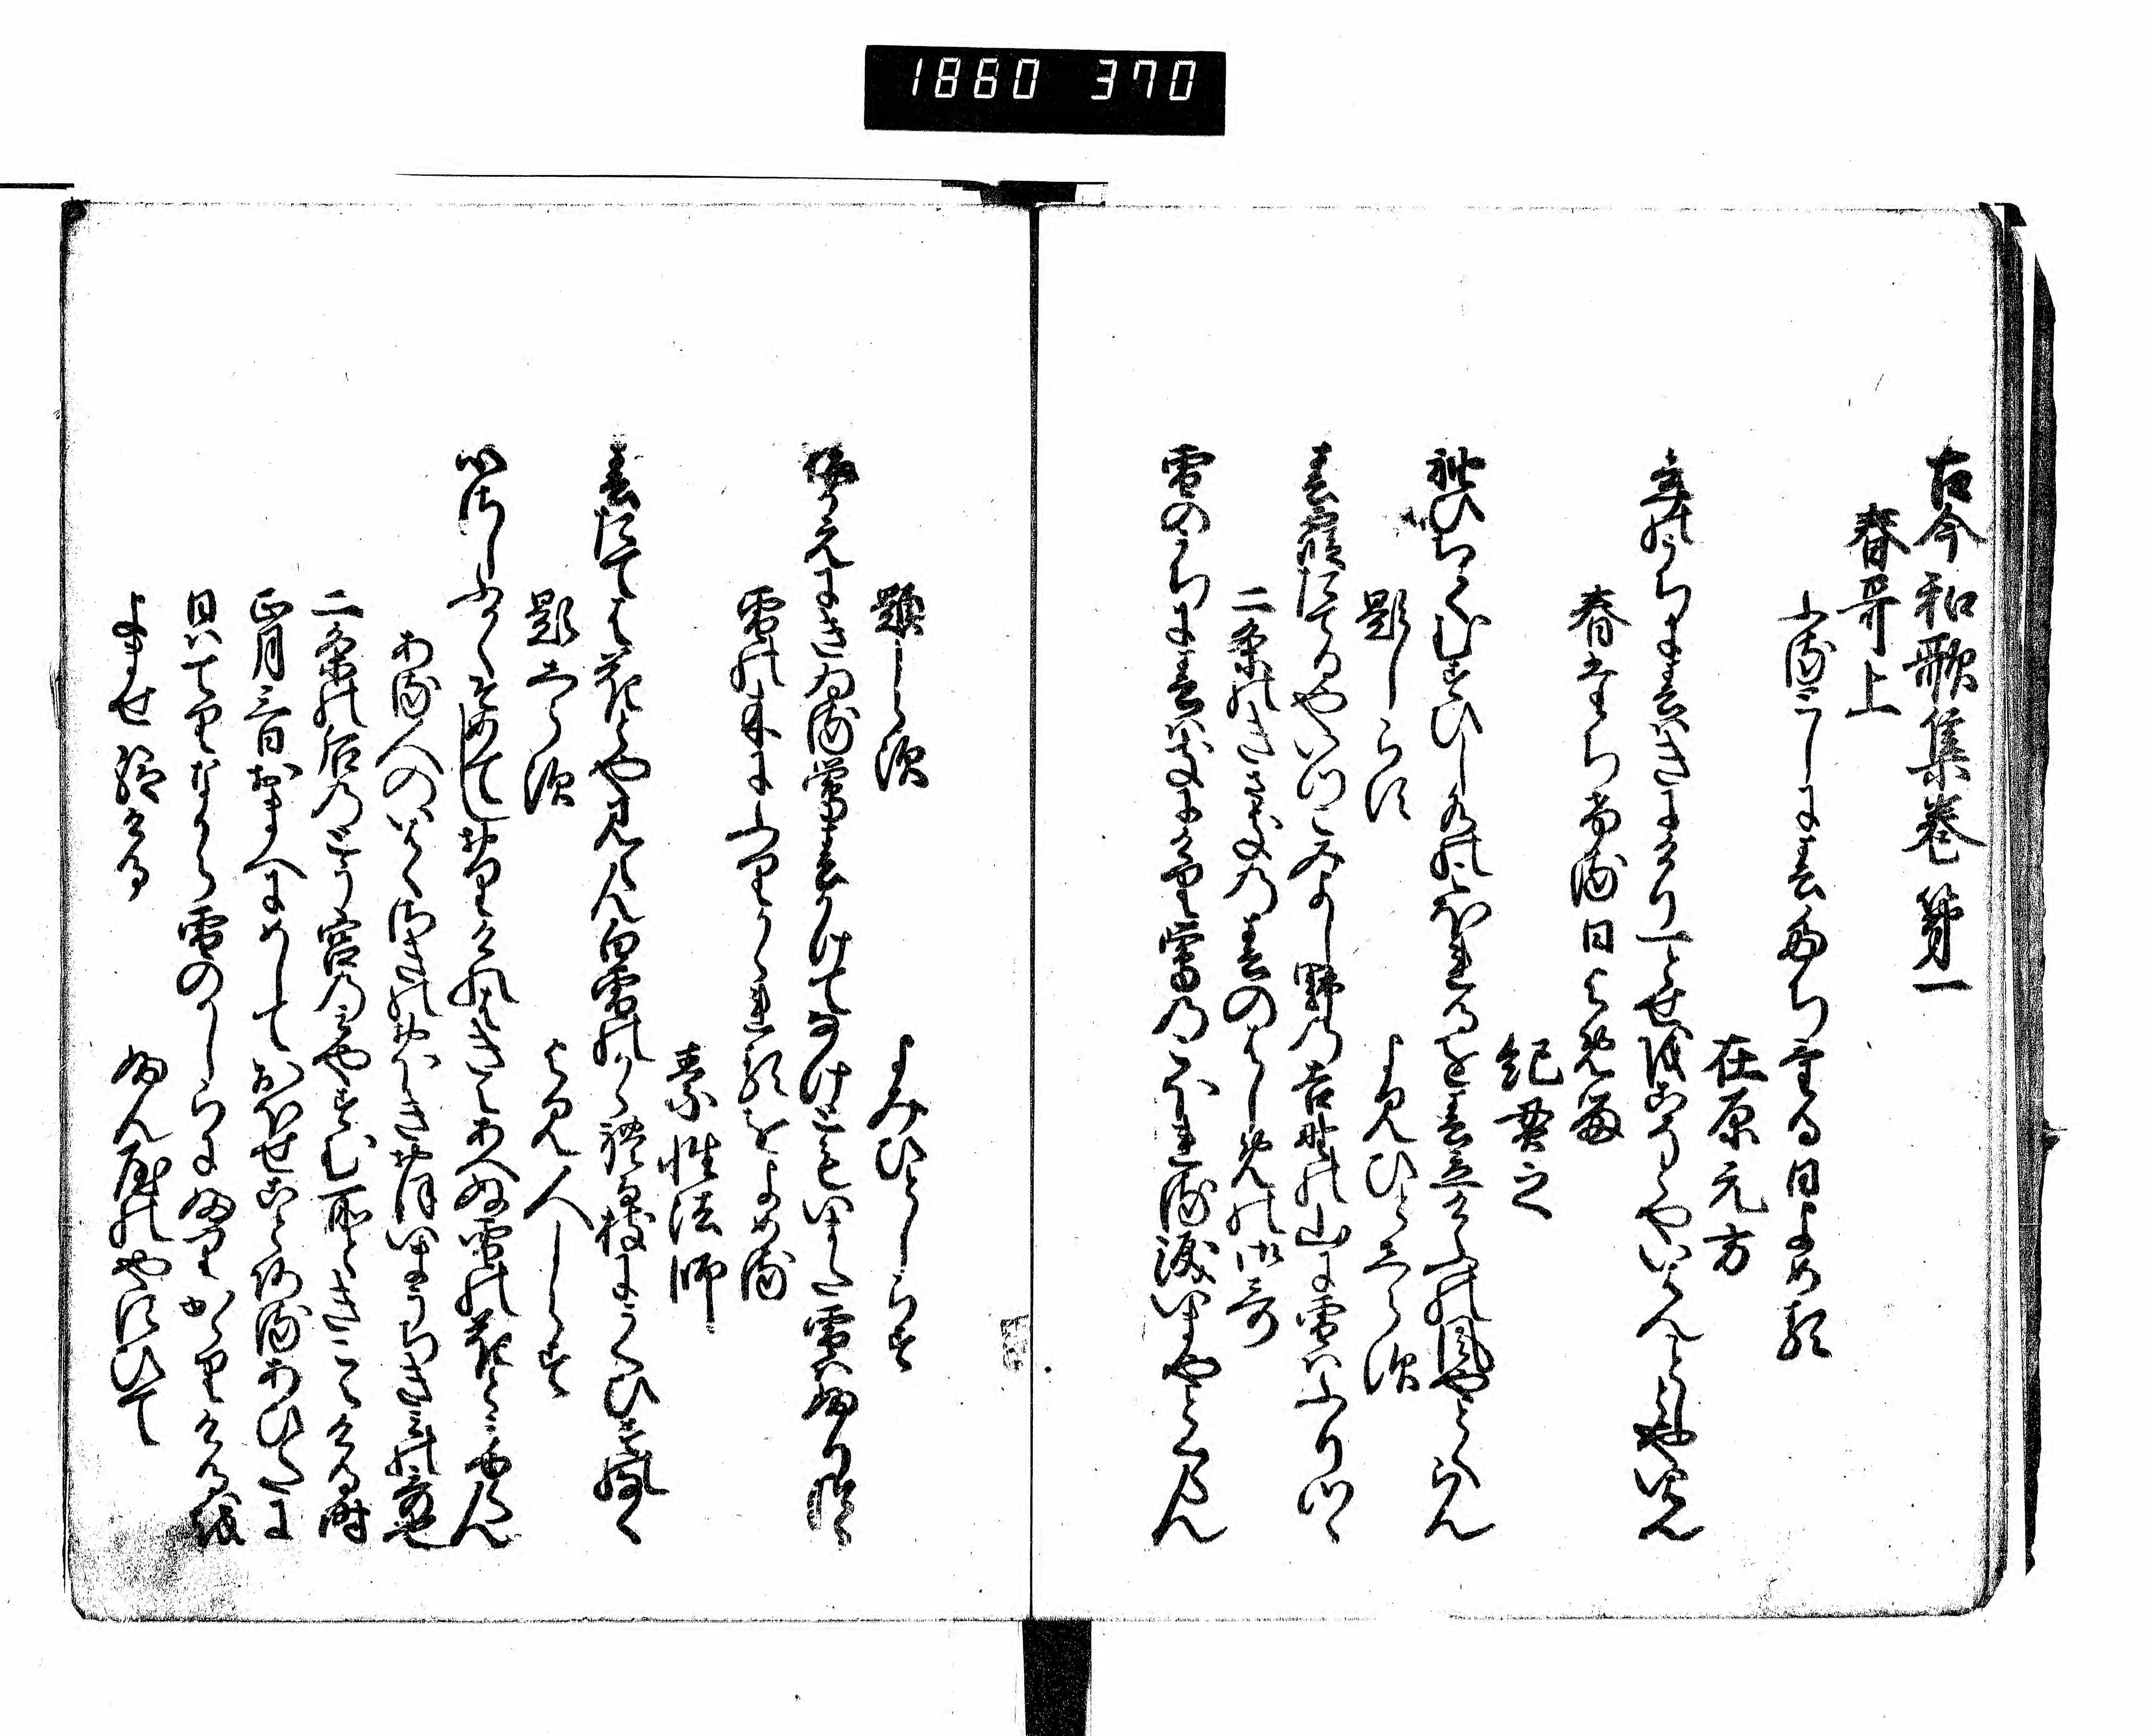 1880 370
古今和歌集巻第一
春哥上
ふるとしに春たちける日よめる
在原元方
年のうちに春はきにけり一とせをこそとやいはんことしとやいはん
春たちける日よめる
紀貫之
袖ひちてむすひし水のこほれるを春立けふの風やとくらん
題しらす
よみ人しらす
春霞たてるやいつこみよし野の吉野の山に雪はふりつゝ
二条のきさきの春のはしめの御哥
雪のうちに春はきにけり鶯のこほれる涙いまやとくらん
題しらす
よみひとしらす
梅かえにきゐる鶯春かけてなけともいまた雪はふりつゝ
雪の木にふりかゝれるをよめる
素性法師
春たては花とや見らん白雪のかゝれる枝にうくひすのなく
題しらす
よみ人しらす
心さしふかくそめてしおりけれはきえあへぬ雪の花とみゆらん
ある人のいはくさきのおほきおほいまうちきみの哥也
二条の后のとう宮のみやすむ所ときこえける時
正月三日おまへにめしておほせことあるあひたに
日はてりなから雪のかしらにふりかゝりけるを
よませ給ける
ふん屋のやすひて